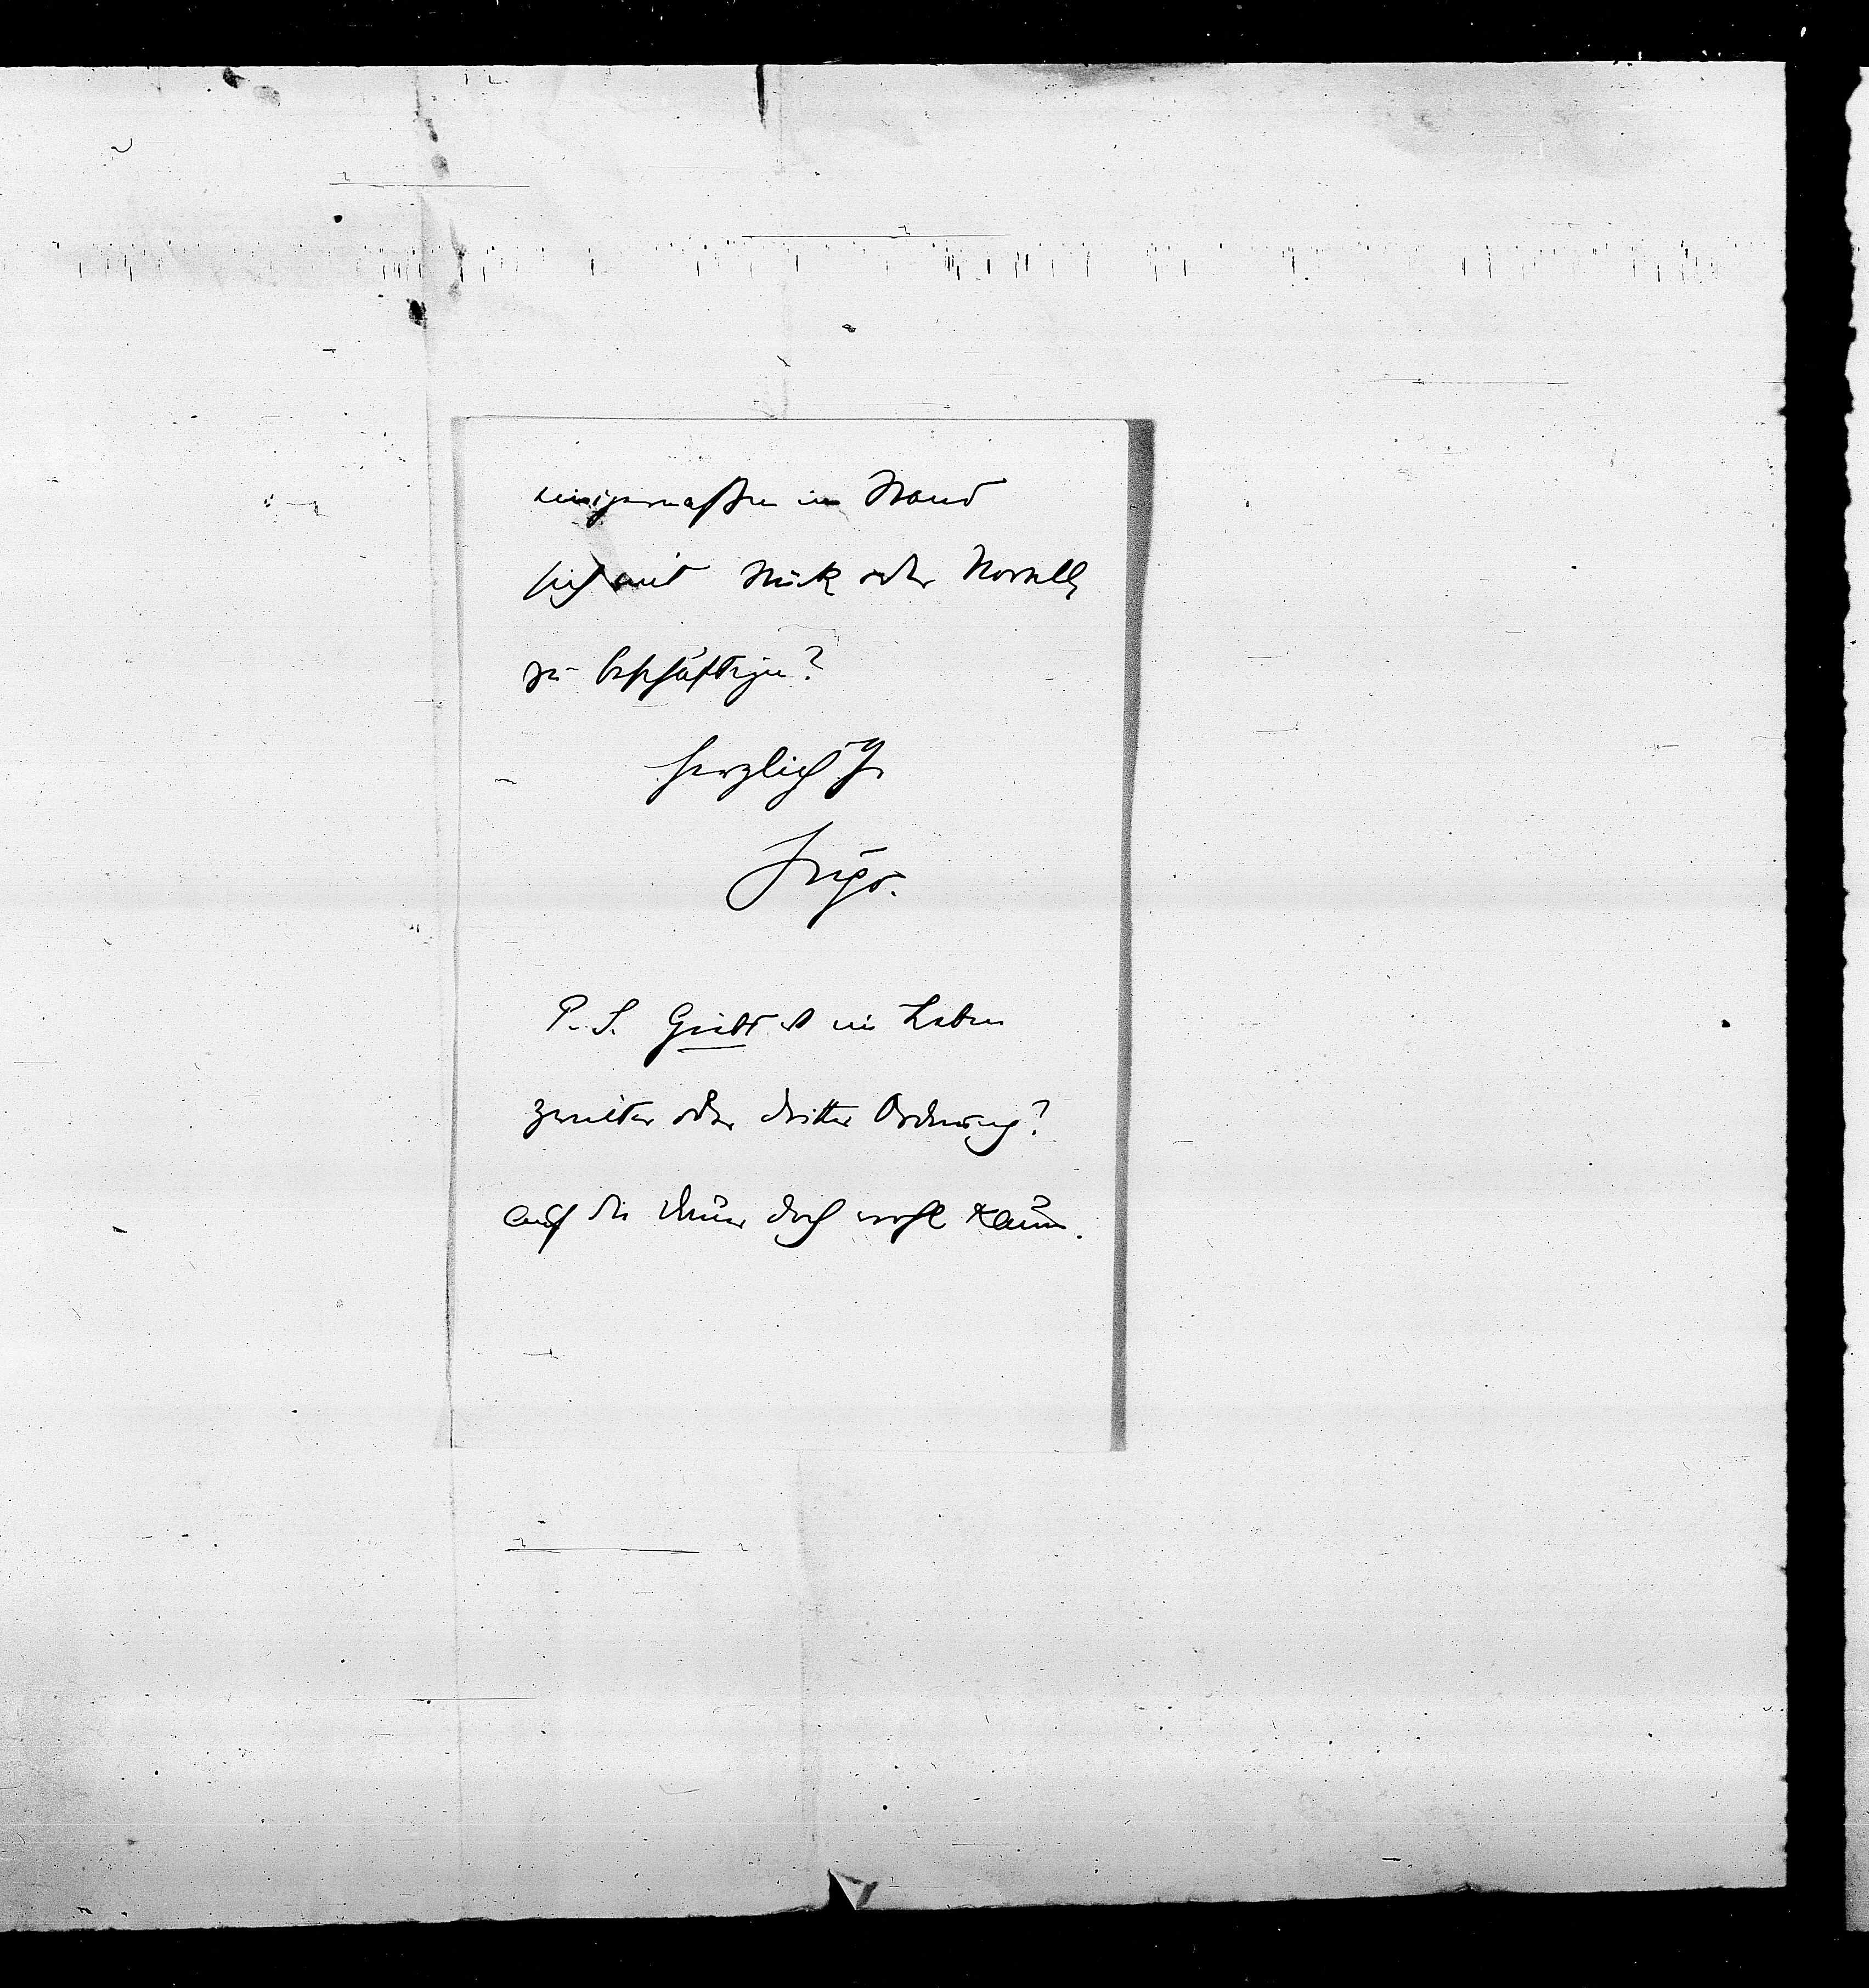 einigermassen im Stand
sich mit Stück oder Novelle
zu beschäftigen?
herzlich Ihr
Hugo.
P. S. Giebt es ein Leben
zweiter oder dritter Ordnung?
auf die Dauer doch wohl kaum.